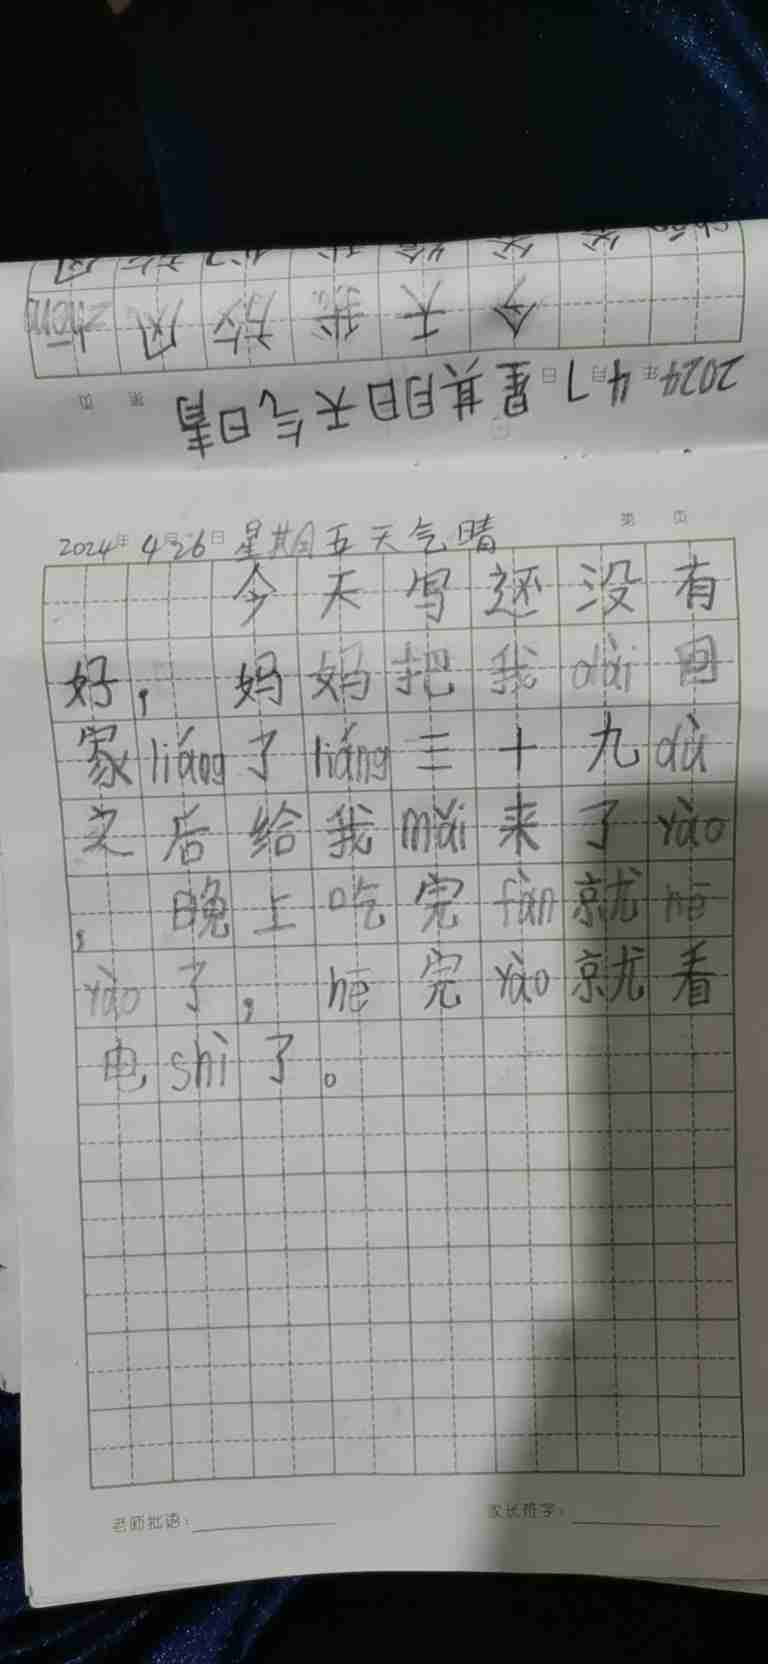 今天我放风zhēng
2024年4月7日星其月日天气日青
第 页
2024年4月26日星期五天气晴
第 页
今天写还没有
好，妈妈把我dài回
家liáng了liáng三十九dù
之后给我mǎi来了yào
，晚上吃完fàn就hē
yào了，hē完yào就看
电shì了。
老师批语：
家长签字：